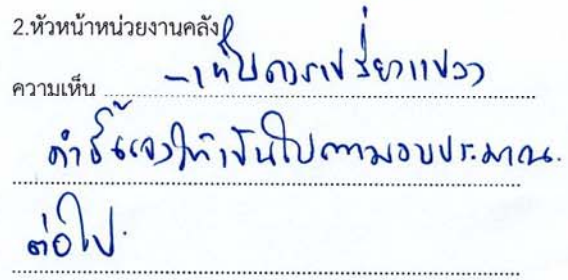 2.หัวหน้าหน่วยงานคลัง
ความเห็น - เห็นควรเปลี่ยนแปลง
คำชี้แจงให้เป็นไปตามงบประมาณ.
ต่อไป.